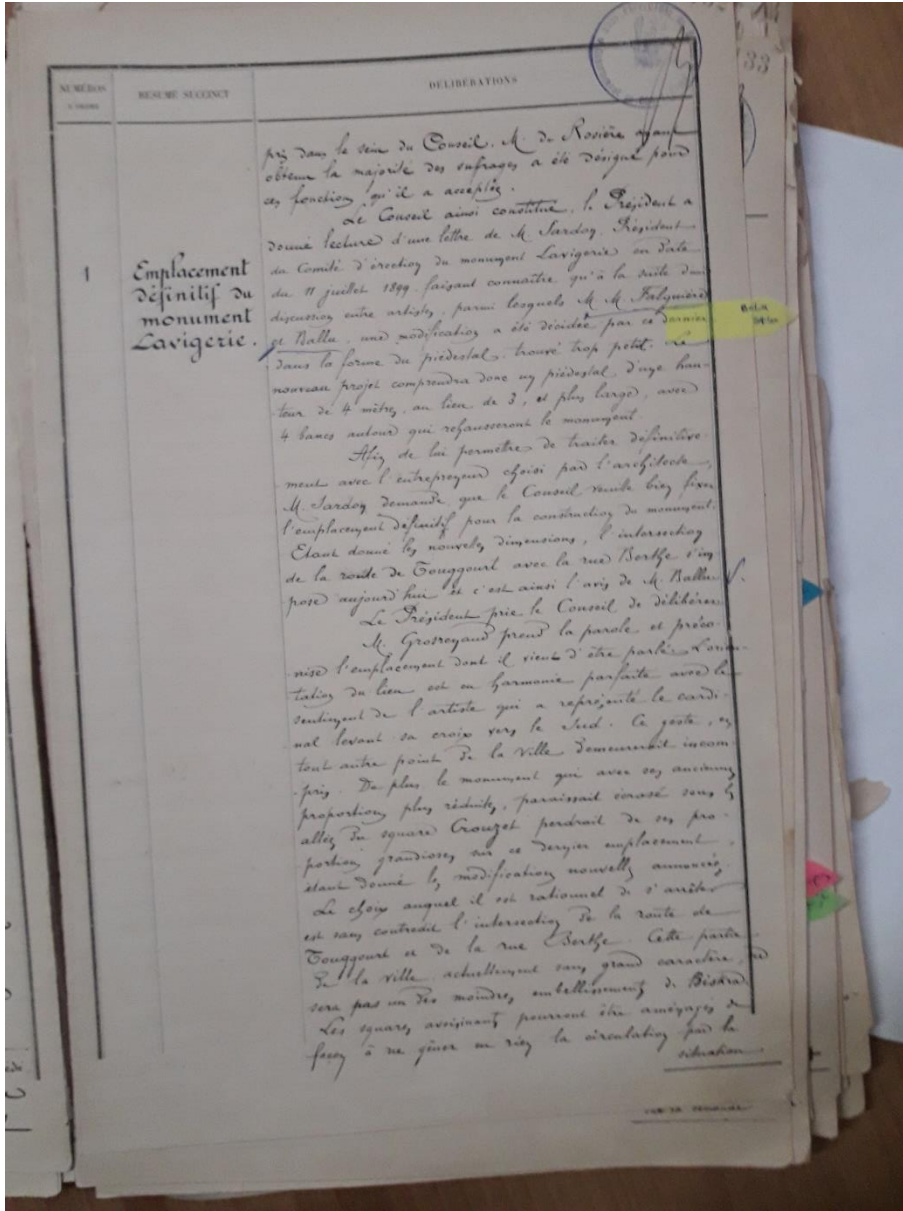 33
NUMÉROS
D'ORDRE
RÉSUMÉ SUCCINCT
DÉLIBÉRATIONS
pris dans le sein du Conseil. M. de Rosière ayant
obtenu la majorité des sufrages a été désigné pour
ces fonctions qu'il a acceptées.
Le Conseil ainsi constitué, le Président a
donné lecture d'une lettre de M. Sardon, Président
1
Emplacement
définitif du
monument
Lavigerie.
du Comité d'érection du monument Lavigerie en date
du 11 juillet 1899, faisant connaître qu'à la suite d'une
discussion entre artistes, parmi lesquels M. M. Falguière
et Ballu, une modification a été décidée par ce dernier
dans la forme du piédestal trouvé trop petit. Le
nouveau projet comprendra donc un piédestal d'une hau-
teur de 4 mètres, au lieu de 3, et plus large, avec
4 bancs autour qui rehausseront le monument.
Afin de lui permettre de traiter définitive-
ment avec l'entrepreneur choisi par l'architecte,
M. Sardon demande que le Conseil veuille bien fixer
l'emplacement définitif pour la construction du monument.
Etant donné les nouvelles dimensions, l'intersection
de la route de Touggourt avec la rue Berthe s'im-
pose aujourd'hui et c'est ainsi l'avis de M. Ballu.
Le Président prie le Conseil de délibérer.
M. Grosreyaud prend la parole et préco-
nise l'emplacement dont il vient d'être parlé. L'orien-
tation du lieu est en harmonie parfaite avec le
sentiment de l'artiste qui a représenté le cardi-
nal levant sa croix vers le Sud. Ce geste, en
tout autre point de la ville demeurerait incom-
pris. De plus, le monument qui avec ses anciennes
proportions plus réduites, paraissait écrasé sous les
allées du square Crouzet perdrait de ses pro-
portions grandioses sur ce dernier emplacement,
étant donné les modifications nouvelles annoncées.
Le choix auquel il est rationnel de s'arrêter
est sans contredit l'intersection de la route de
Touggourt et de la rue Berthe. Cette partie
de la ville actuellement sans grand caractère, ne
sera pas un des moindres embellissements de Biskra.
Les squares avoisinants pourront être aménagés de
façon à ne gêner en rien la circulation par la
situation